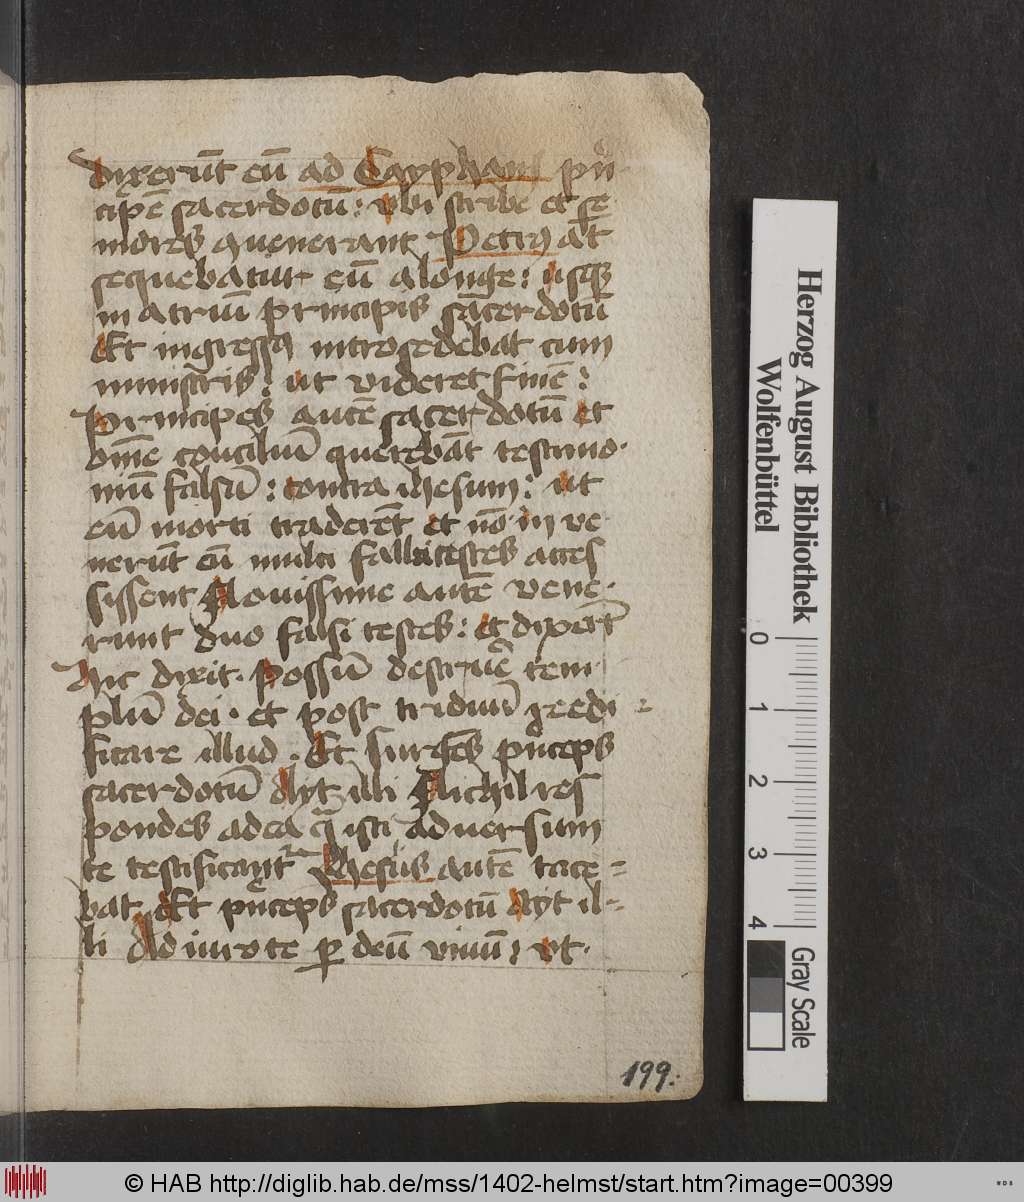 dixerūt eū ad Caypham pri
cipē sacerdotū : vbi scribe et se
niores ꝯuenerant Petrꝰ āt
sequebatur eū alonge : usqꝫ
in atriū principis sacerdotū
Et ingressꝰ introsedebat cum
ministris : ut videret finē :
Principes autē sacerdotū et
omē conciliū querebāt testimo
niū falsū : contra ihesum : ut
eū morti traderēt et nō in ve
nerūt cū multi falsi testes acces
sissent Nouissime autē vene
runt duo falsi testes : et dixerūt
hic dixit . Possū destruē tem
plū dei . et post triduū reedi
ficare illud . Et surgēs pͥnceps
sacerdotū Ayt illi Nichil res
pondes ad ea q̄ isti aduersum
te testificant᷑ Ihesus autē tace =
bat Et pͥnceps sacerdotū Ayt il =
li Ad iuro te ꝑ deū viuū : vt .
199.
Herzog August Bibliothek
Wolfenbüttel
0 1 2 3 4
Gray Scale
© HAB http://diglib.hab.de/mss/1402-helmst/start.htm?image=00399